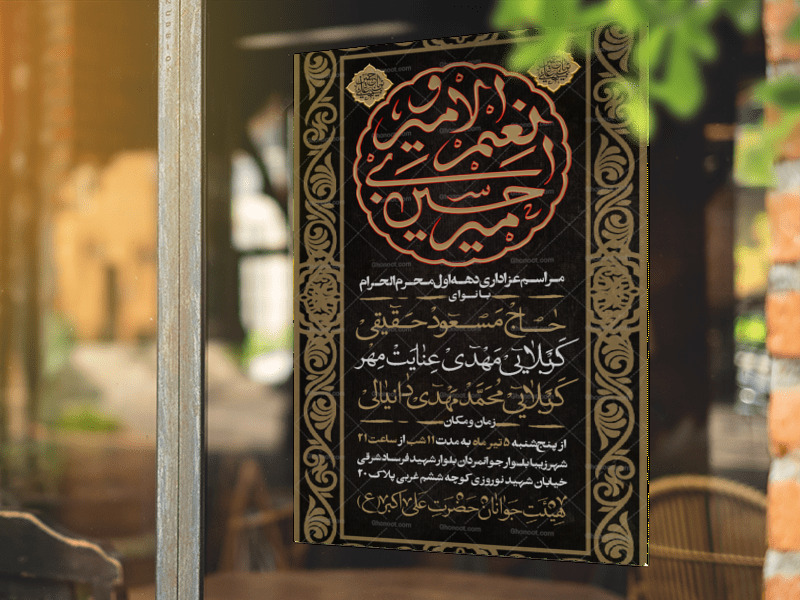 امیری حسین و نعم الامیر
مراسم عزاداری دهه اول محرم الحرام
با نوای
حاج مسعود حقیقی
کربلایی مهدی عنایت مهر
کربلایی محمد مهدی دانیالی
زمان و مکان
از پنج‌شنبه ۵ تیر ماه به مدت ۱۱ شب از ساعت ۲۱
شهرزیبا بلوار جوانمردان بلوار شهید فرساد شرقی
خیابان شهید نوروزی کوچه ششم غربی پلاک ۲۰
هیئت جوانان حضرت علی اکبر (ع)
Ghonoot.com